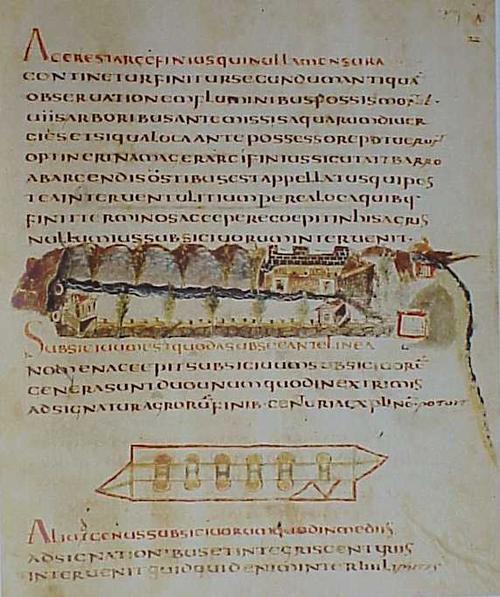 AGERESTARCIFINIUSQUINULLAMENSURA
CONTINETURFINITURSECUNDUMANTIQUA
OBSERUATIONEMFLUMINIBUSFOSSISMONT
UIISARBORIBUSANTEMISSISAQUARUMDIUER
GIISETSIQUALOCAANTEPOSSESSOREPOTUERUNT
OPTINERINAMAGERARCIFINIUSSICUTAITBARRO
ABARCENDISOSTIBUSESTAPPELLATUSQUIPOS
TEAINTERUENTULITIUMPEREALOCAQUIBQ
FINITTERMINOSACCEPERECOEPITINHISAGRIS
NULLUMIUSSUBSICIUORUMINTERUENIT
SUBSICIUUMESTQUODASUBSECANTELINEA
NOMENACCEPITSUBSICIUUMSUBSICIUORU
GENERASUNTDUOUNUMQUODINEXTREMIS
ADSIGNATORUAGRORUFINIB·CENTURIAEXPLINO·POTUIT
ALIUTGENUSSUBSICIUORUMQUODINMEDIIS
ADSIGNATIONIBUSETINTEGRISCENTURIIS
INTERUENITQUIDQUIDENIMINTERIIIILIMITES